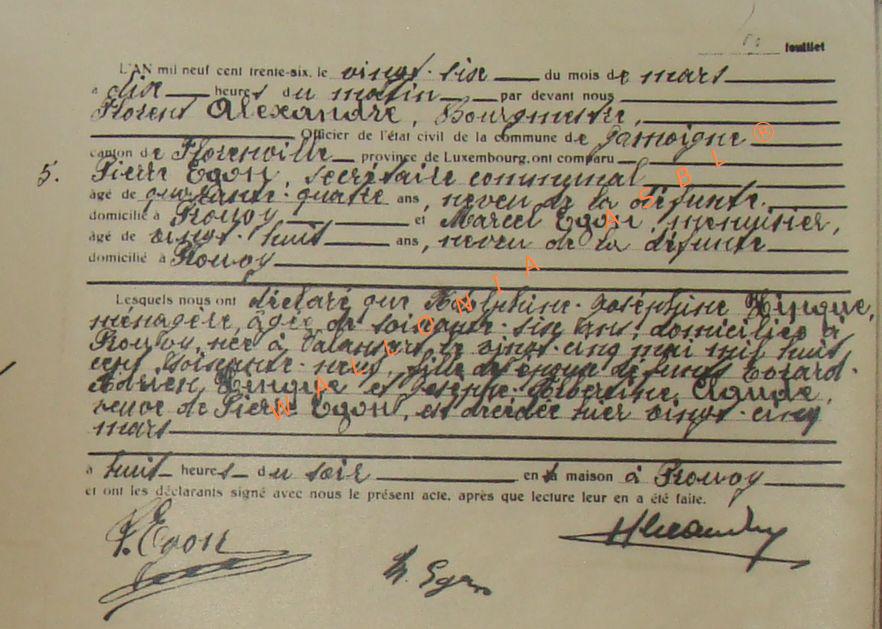 feuillet
L'AN mil neuf cent trente-six, le vingt-six du mois de mars
à dix heures du matin par devant nous
Florent Alexandre, Bourgmestre,
Officier de l'état civil de la commune de Jamoigne
canton de Florenville province de Luxembourg, ont comparu
5. Pierre Egon, secrétaire communal
âgé de quarante-quatre ans, neveu de la défunte.
domicilié à Prouvy et Marcel Egon, menuisier,
âgé de vingt-huit ans, neveu de la défunte
domicilié à Prouvy
Lesquels nous ont déclaré que Delphine-Joséphine
ménagère, âgée de soixante-six ans, domiciliée à
Prouvy, née à Valansart le vingt-cinq mai mil huit
cent soixante-neuf, fille des époux défunts
Adrien et Albertine,
veuve de Pierre Egon, est décédée hier vingt-cinq
mars
à huit heures du soir en sa maison à Prouvy
et ont les déclarants signé avec nous le présent acte, après que lecture leur en a été faite.
P. Egon
Alexandre
M. Egon
WALLONIA ASBL ®